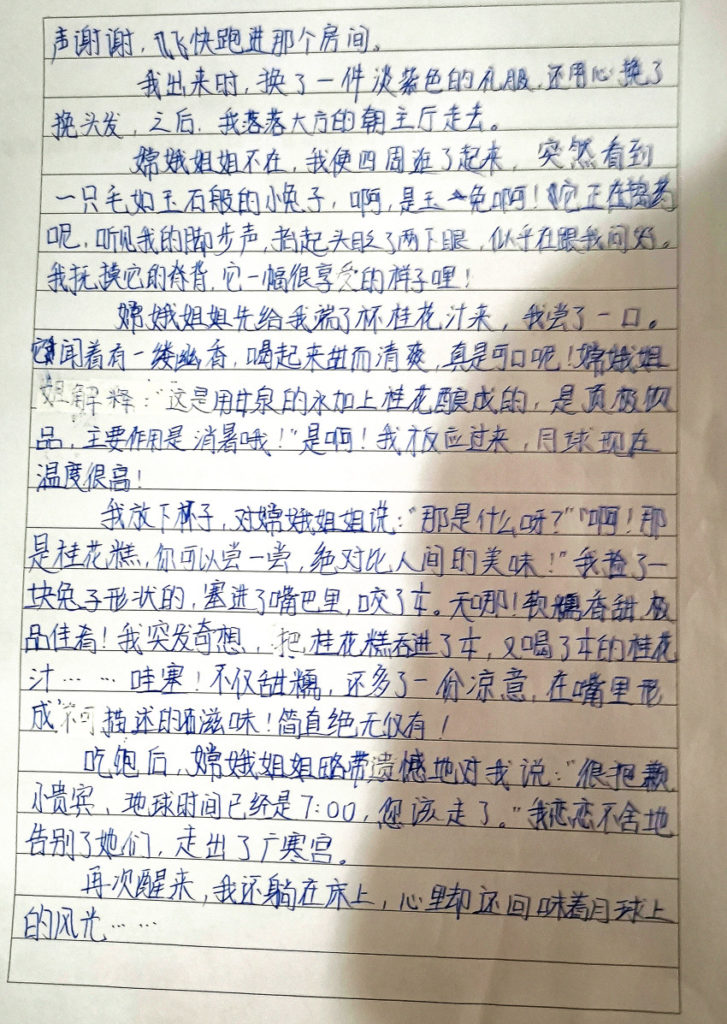 声谢谢，飞快跑进那个房间。
我出来时，换了一件淡紫色的礼服，还用心挽了
挽头发，之后，我落落大方的朝主厅走去。
嫦娥姐姐不在，我便四周逛了起来，突然看到
一只毛如玉石般的小兔子，啊，是玉兔啊！它正在捣药
呢，听见我的脚步声，抬起头眨了两下眼，似乎在跟我问好。
我抚摸它的脊背，它一幅很享受的样子哩！
嫦娥姐姐先给我端了杯桂花汁来，我尝了一口。
闻着有一缕幽香，喝起来甜而清爽，真是可口呢！嫦娥姐
姐解释：“这是用甘泉的水加上桂花酿成的，是顶极饮
品，主要作用是消暑哦！”是啊！我板应过来，月球现在
温度很高！
我放下杯子，对嫦娥姐姐说：“那是什么呀？”“啊！那
是桂花糕，你可以尝一尝，绝对比人间的美味！”我捡了一
块兔子形状的，塞进了嘴巴里，咬了本。天哪！软糯香甜，极
品佳肴！我突发奇想，把桂花糕吞进了本，又喝了本的桂花
汁……哇塞！不仅甜糯，还多了一份凉意，在嘴里形
成不可描述的滋味！简直绝无仅有！
吃饱后，嫦娥姐姐略带遗憾地对我说：“很抱歉
小贵宾，地球时间已经是7:00，您该走了。”我恋恋不舍地
告别了她们，走出了广寒宫。
再次醒来，我还躺在床上，心里却还回味着月球上
的风光……